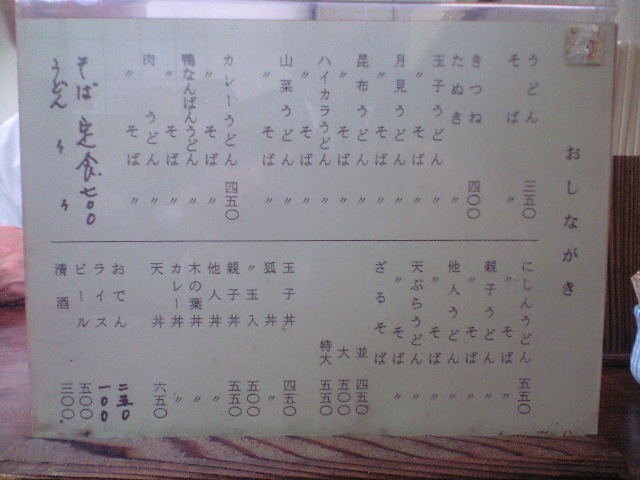 おしながき
うどん 三五〇
そば 〃
きつね 四〇〇
たぬき 〃
玉子うどん 〃
〃 そば 〃
月見うどん 〃
〃 そば 〃
昆布うどん 〃
〃 そば 〃
ハイカラうどん 〃
〃 そば 〃
山菜うどん 〃
〃 そば 〃
カレーうどん 四五〇
〃 そば 〃
鴨なんばんうどん 〃
〃 そば 〃
肉 うどん 〃
〃 そば 〃
そば定食 七〇〇
うどん 〃 〃
にしんうどん 五五〇
〃 そば 〃
親子うどん 〃
〃 そば 〃
他人うどん 〃
〃 そば 〃
天ぷらうどん 〃
〃 そば 〃
ざるそば 並 四五〇
大 五〇〇
特大 五五〇
玉子丼 四五〇
狐丼 〃
〃玉入 五〇〇
親子丼 五五〇
他人丼 〃
木の葉丼 〃
カレー丼 〃
天丼 六五〇
おでん 二五〇
ライス 一〇〇
ビール 五〇〇
清酒 三〇〇